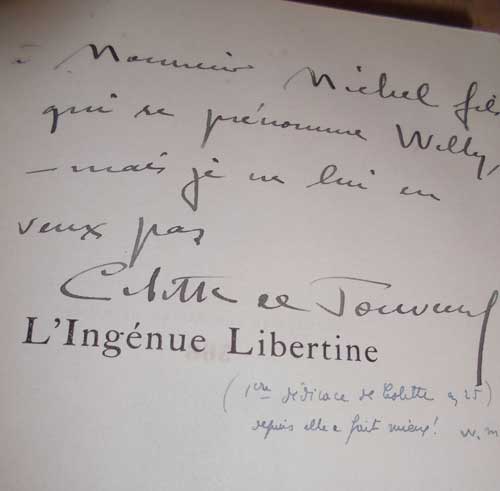 à Monsieur Michel fils
qui se prénomme Willy,
— mais je ne lui en
veux pas
Colette de Jouvenel
L'Ingénue Libertine
(1ère dédicace de Colette en 25)
depuis elle a fait mieux! W. M